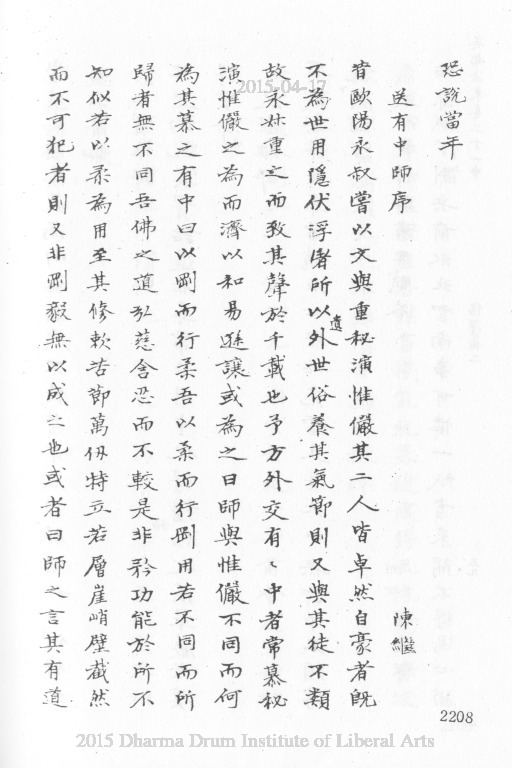 恐說當年
送有中師序 陳繼
昔歐陽永叔嘗以文與重秘演惟儼其二人皆卓然自豪者既
不為世用隱伏浮屠所以外遺世俗養其氣節則又與其徒不類
故永叔重之而致其聲於千載也予方外交有〻中者常慕秘
演惟儼之為而濟以和易遜讓或為之曰師與惟儼不同而何
為其慕之有中曰以剛而行柔吾以柔而行剛用若不同而所
歸者無不同吾佛之道弘慈含忍而不較是非矜功能於所不
知似若以柔為用至其修軟苦節萬仞特立若層崖峭壁截然
而不可犯者則又非剛毅無以成之也或者曰師之言其有道
2208
2015-04-17
2015 Dharma Drum Institute of Liberal Arts